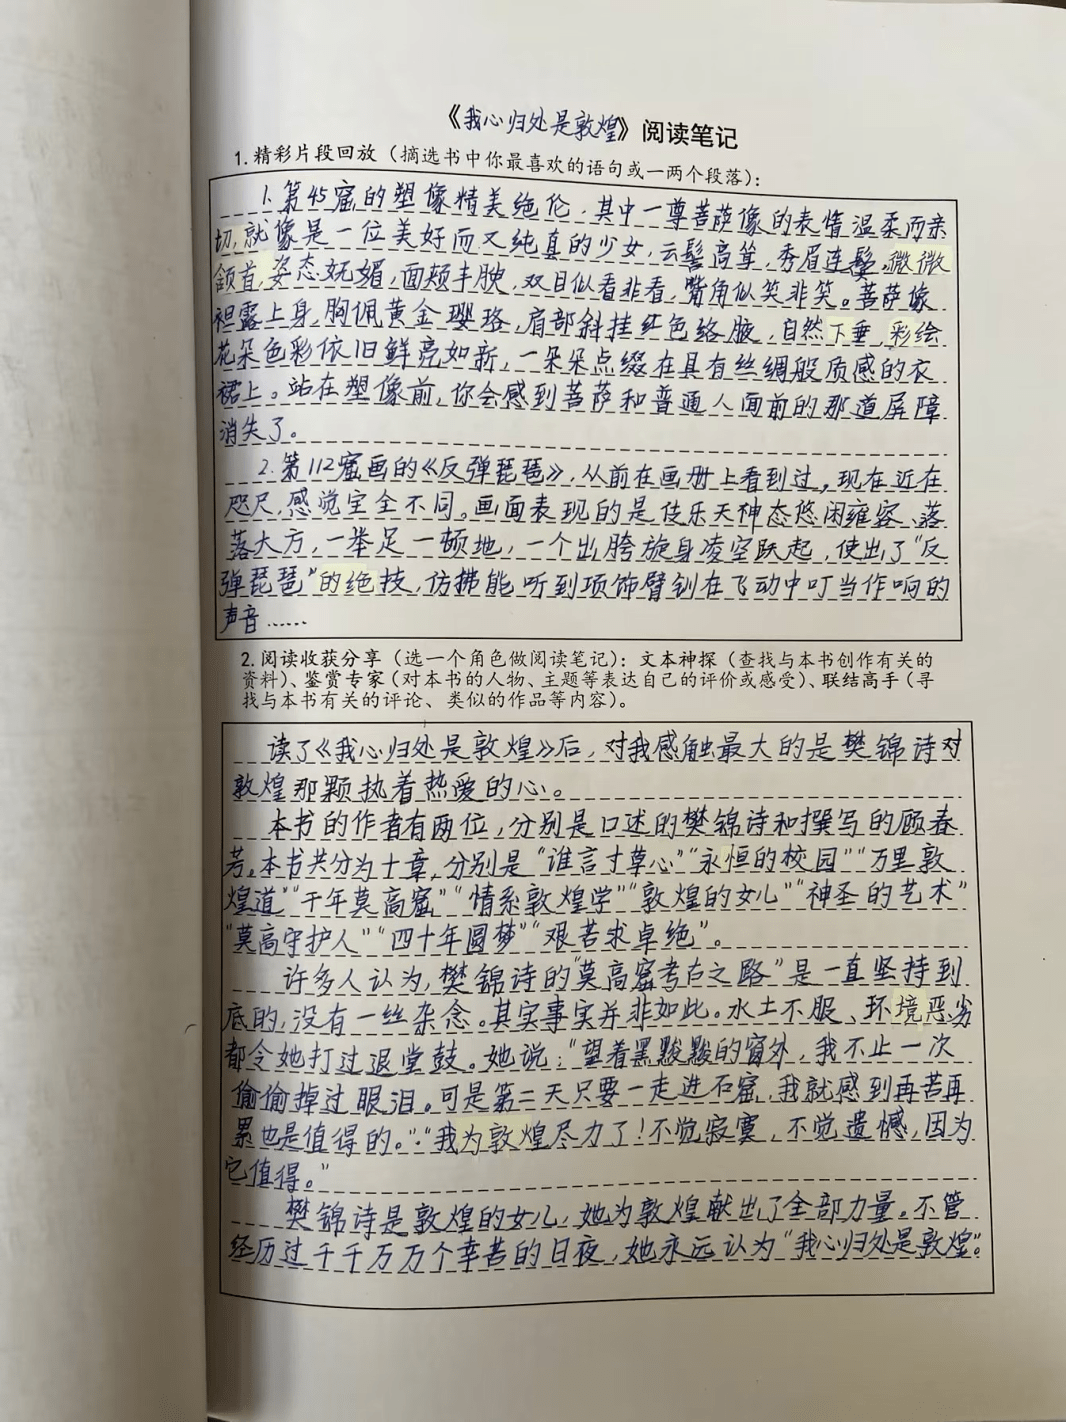 《我心归处是敦煌》阅读笔记
1. 精彩片段回放（摘选书中你最喜欢的语句或一两个段落）：
1. 第45窟的塑像精美绝伦，其中一尊菩萨像的表情温柔而亲
切，就像是一位美好而又纯真的少女，云髻高耸，秀眉连鬓，微微
颔首，姿态妩媚，面颊丰腴，双目似看非看，嘴角似笑非笑。菩萨像
袒露上身，胸佩黄金璎珞，肩部斜挂红色络腋，自然下垂，彩绘
花朵色彩依旧鲜亮如新，一朵朵点缀在具有丝绸般质感的衣
裙上。站在塑像前，你会感到菩萨和普通人面前的那道屏障
消失了。
2. 第112窟画的《反弹琵琶》，从前在画册上看到过，现在近在
咫尺，感觉完全不同。画面表现的是伎乐天神态悠闲雍容、落
落大方，一举足一顿地，一个出胯旋身凌空跃起，使出了“反
弹琵琶”的绝技，仿拂能听到项饰臂钏在飞动中叮当作响的
声音……
2. 阅读收获分享（选一个角色做阅读笔记）：文本神探（查找与本书创作有关的
资料）、鉴赏专家（对本书的人物、主题等表达自己的评价或感受）、联结高手（寻
找与本书有关的评论、类似的作品等内容）。
读了《我心归处是敦煌》后，对我感触最大的是樊锦诗对
敦煌那颗执着热爱的心。
本书的作者有两位，分别是口述的樊锦诗和撰写的顾春
芳。本书共分为十章，分别是“谁言寸草心”“永恒的校园”“万里敦
煌道”“千年莫高窟”“情系敦煌学”“敦煌的女儿”“神圣的艺术”
“莫高守护人”“四十年圆梦”“艰苦求卓绝”。
许多人认为，樊锦诗的“莫高窟考古之路”是一直坚持到
底的，没有一丝杂念。其实事实并非如此。水土不服、环境恶劣
都令她打过退堂鼓。她说：“望着黑黢黢的窗外，我不止一次
偷偷掉过眼泪。可是第二天只要一走进石窟，我就感到再苦再
累也是值得的。”“我为敦煌尽力了！不觉寂寞，不觉遗憾，因为
它值得。”
樊锦诗是敦煌的女儿，她为敦煌献出了全部力量。不管
经历过千千万万个幸苦的日夜，她永远认为“我心归处是敦煌”。